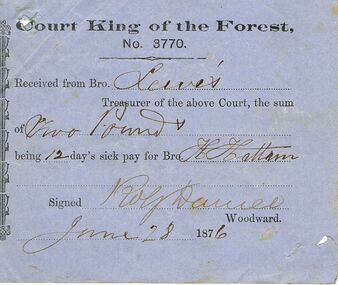 Court King of the Forest,
No. 3770.
Received from Bro. Lewis
Treasurer of the above Court, the sum
of Two Pounds
being 12 day's sick pay for Bro H Hattam
Signed Robt Daniel
Woodward.
June 28 1876